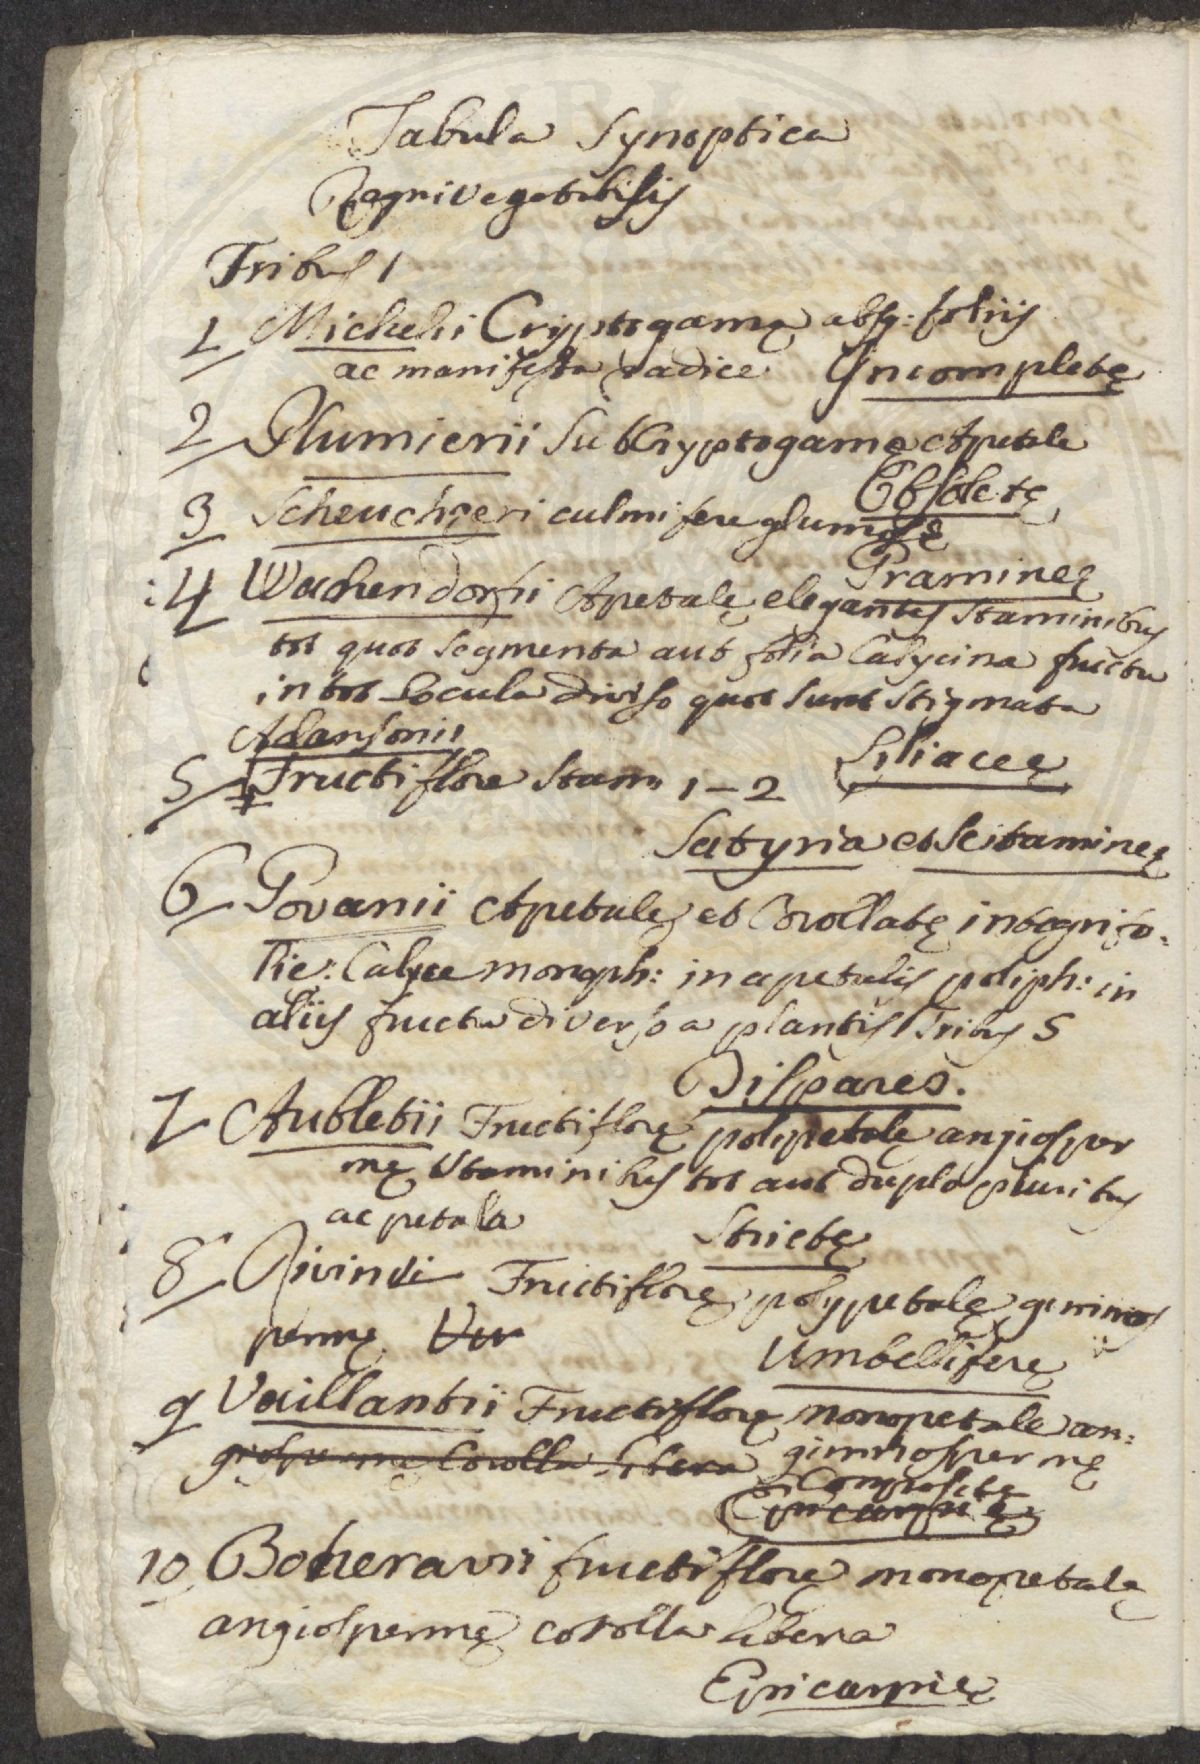 Tabula Synoptica
Regni vegetabilis
Tribus 1
1 Michelii Cryptogamę absq: foliis
ac manifesta radice Incompletę
2 Plumierii Subcryptogamę Apetalę
Obsoletę
3 Scheuchzeri culmiferę glumosę
Gramineę
4 Wachendorfii Apetalę elegantes Staminibus
tot quot segmenta aut folia Calycina fructu
in tot Locula diviso quot sunt Stigmata
Adansonii Liliaceę
5 Fructiflorę Stam 1-2
Satyria et Scitamineę
6 Govanii Apetalę et Corollatę integrifo-
lię: Calyce monoph: in apetalis poliph: in
aliis fructu diverso a plantis Tribus 5
Dispares.
7 Aubletii Fructiflorę polipetalę angiosper
mę Staminibus tot aut duplo pluribus
ac petala Strictę
8 Rivini Fructiflorę polypetalę gimnos
permę Umbelliferę
9 Vaillantii Fructiflorę monopetalę an:
giospermę Corolla libera gimnospermę
Compositę
Epicarpię
10 Boheravii fructiflorę monopetalę
angiospermę corolla libera
Epicarpię